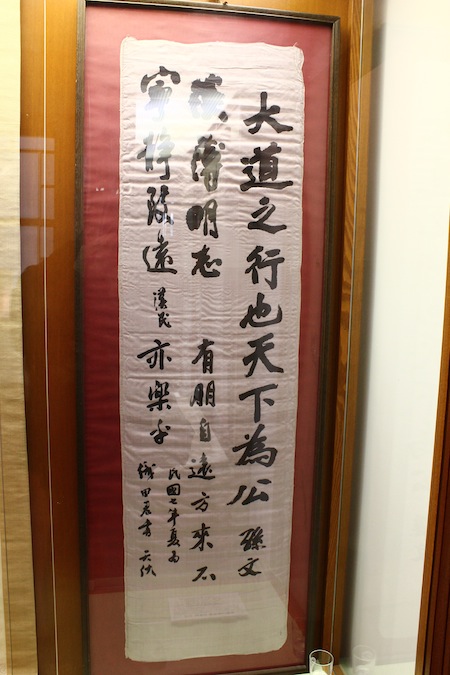 大道之行也天下為公 孫文
薄明志
寧靜致遠 漢民
有朋自遠方來不
亦樂乎
民國七年夏為
織田君書 天仇